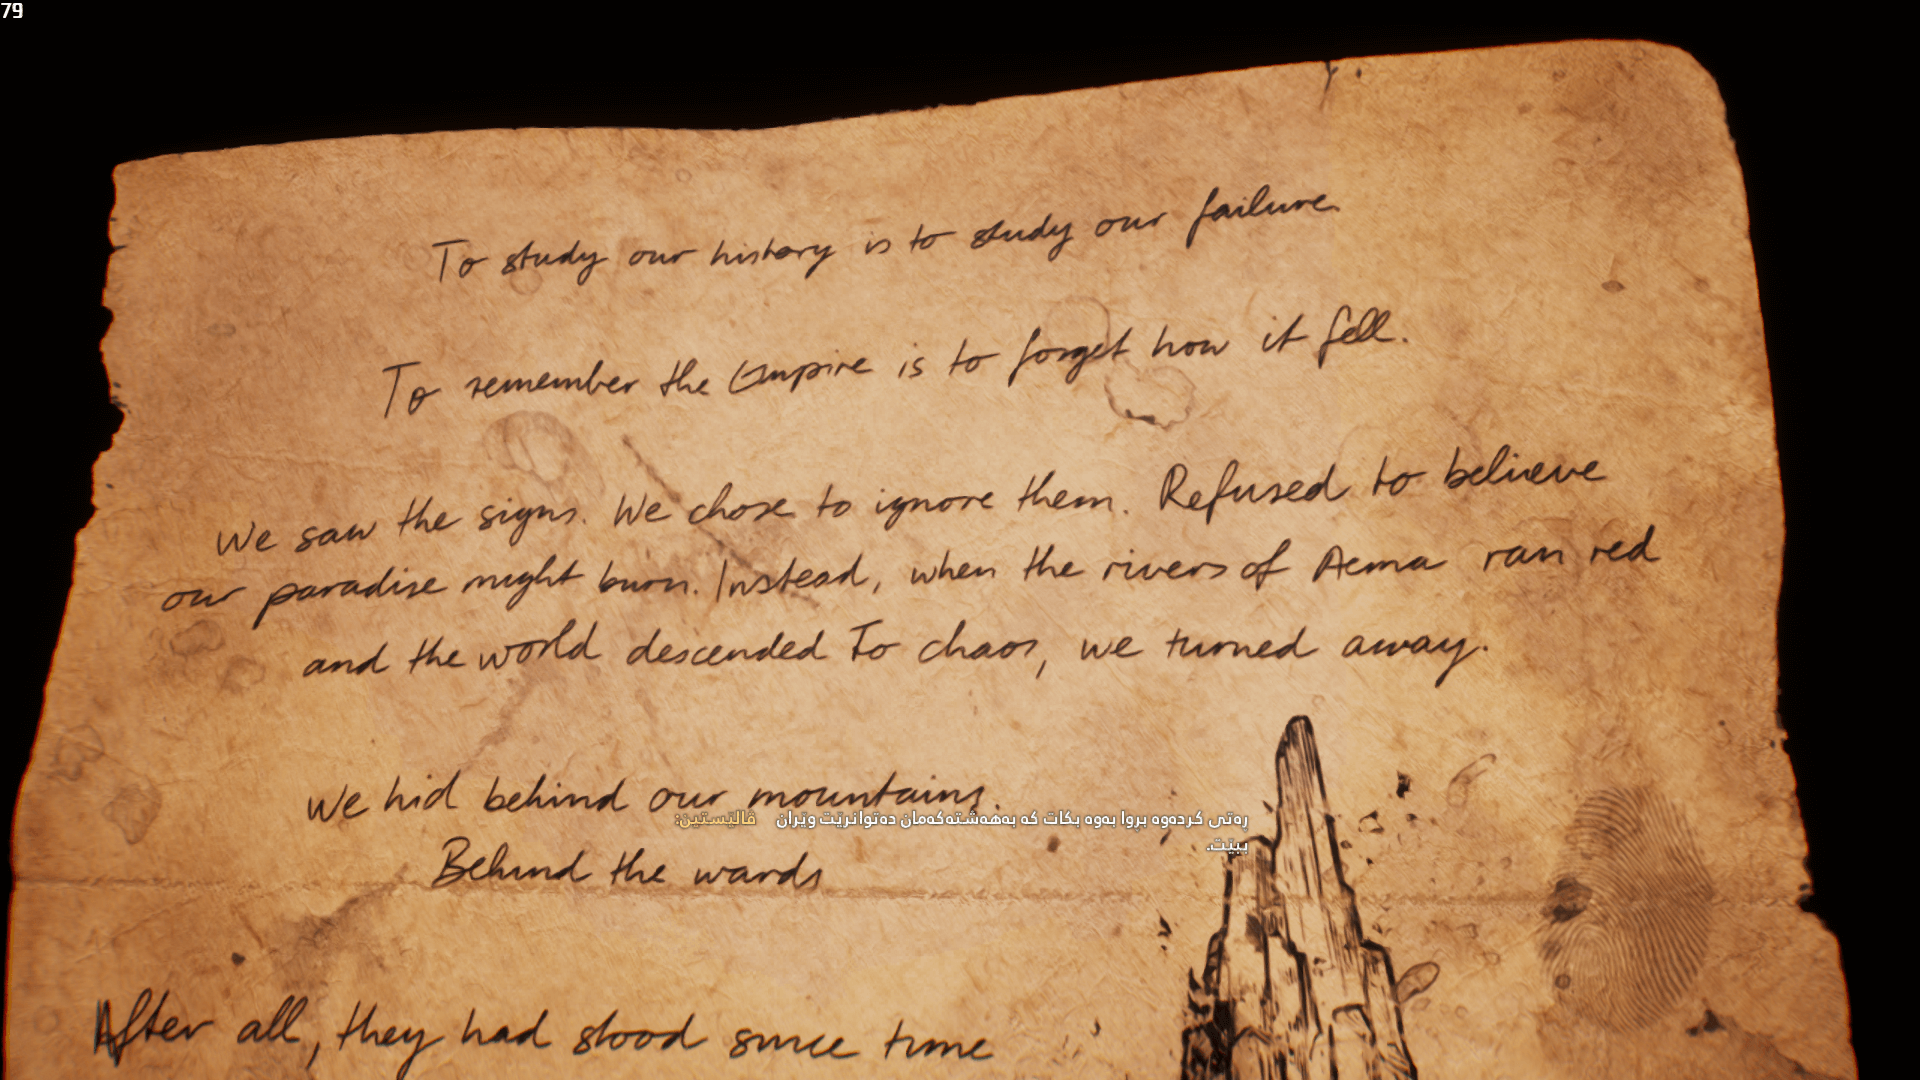 79
To study our history is to study our failure.
To remember the Empire is to forget how it fell.
We saw the signs. We chose to ignore them. Refused to believe
our paradise might burn. Instead, when the rivers of Aema ran red
and the world descended to chaos, we turned away.
We hid behind our mountains.
ڤالێستین: ڕەتی کردەوە بڕوا بەوە بکات کە بەهەشتەکەمان دەتوانرێت وێران
ببێت.
Behind the wards
After all, they had stood since time